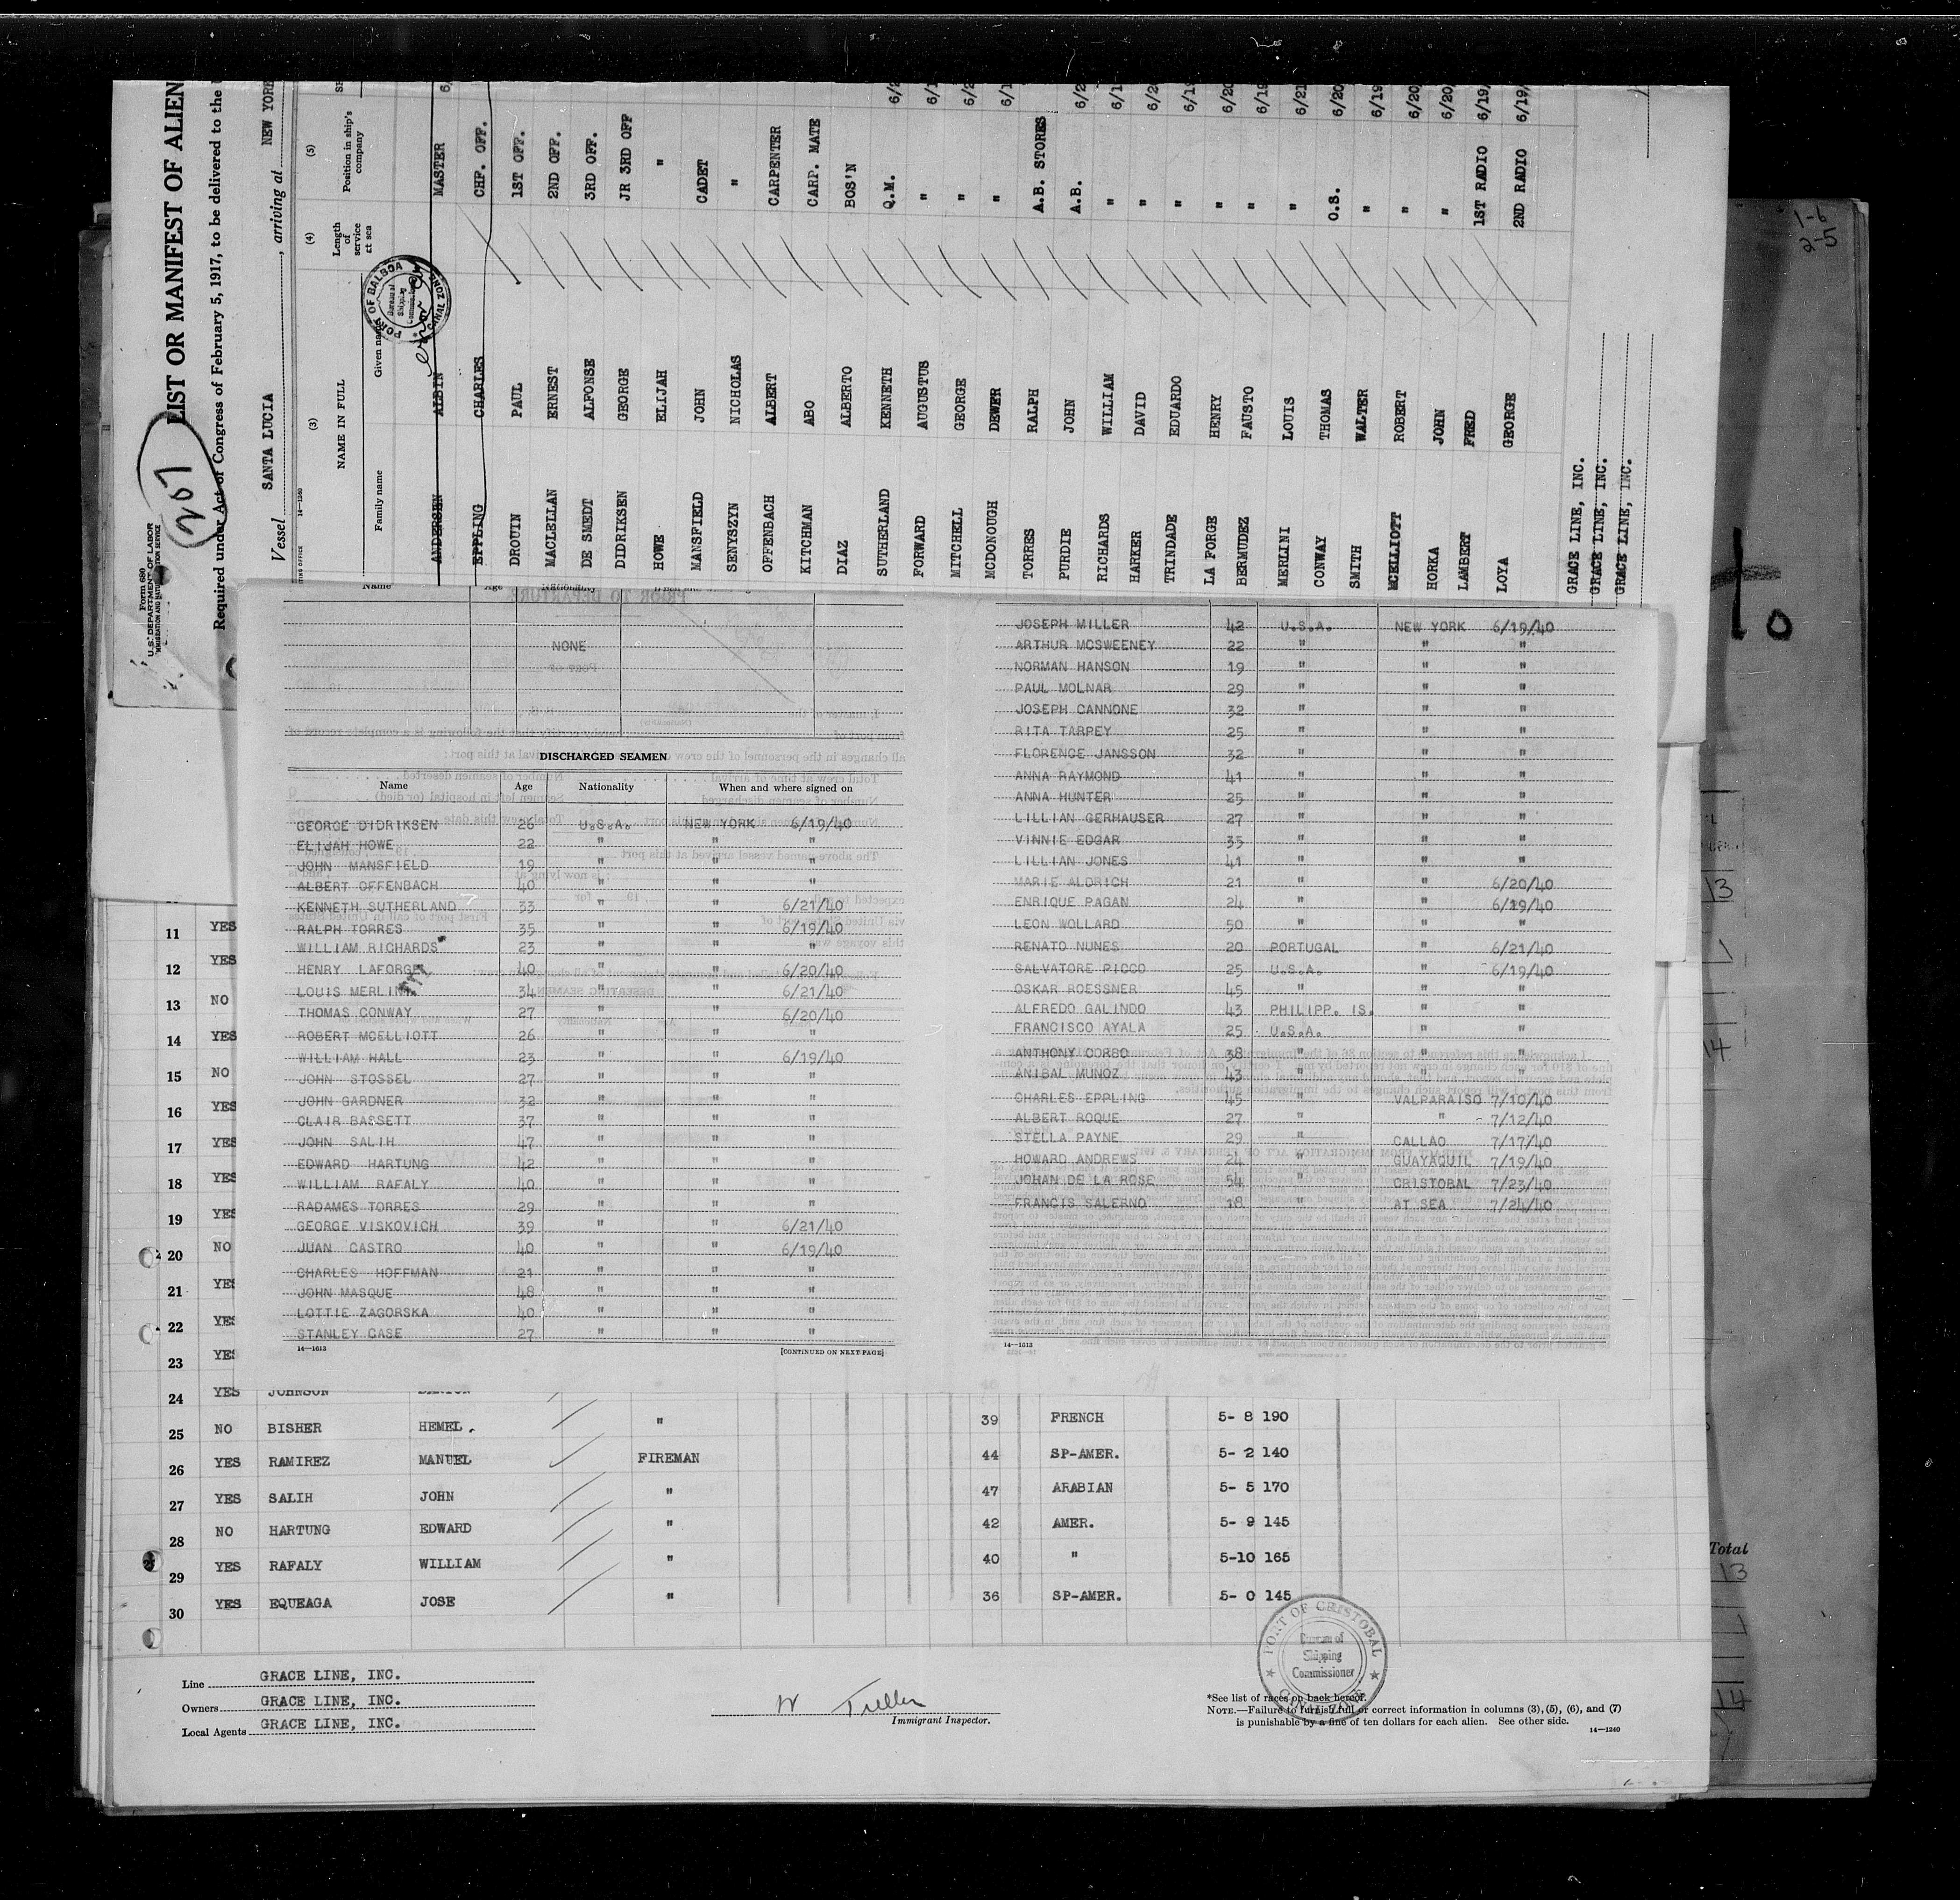 Form 680
U.S. DEPARTMENT OF LABOR
IMMIGRATION AND NATURALIZATION SERVICE
207
LIST OR MANIFEST OF ALIEN
Required under Act of Congress of February 5, 1917, to be delivered to the
Vessel SANTA LUCIA, arriving at NEW YORK
14—1240
(3) (4) (5)
NAME IN FULL Length of service at sea Position in ship's company
Family name Given name
ANDERSEN ALBIN MASTER 6/
EPPLING CHARLES CHF. OFF.
DROUIN PAUL 1ST OFF.
MACLELLAN ERNEST 2ND OFF.
DE SMEDT ALFONSE 3RD OFF.
DIDRIKSEN GEORGE JR 3RD OFF
HOWE ELIJAH "
MANSFIELD JOHN CADET
SENYSZYN NICHOLAS "
OFFENBACH ALBERT CARPENTER
KITCHMAN ABO CARP. MATE
DIAZ ALBERTO BOS'N
SUTHERLAND KENNETH Q.M. 6/2
FORWARD AUGUSTUS " 6/1
MITCHELL GEORGE " 6/2
MCDONOUGH DEWER " 6/1
TORRES RALPH A.B. STORES
PURDIE JOHN A.B. 6/2
RICHARDS WILLIAM " 6/1
HARKER DAVID " 6/2
TRINDADE EDUARDO " 6/1
LA FORGE HENRY " 6/20
BERMUDEZ FAUSTO " 6/19
MERLINI LOUIS " 6/21
CONWAY THOMAS O.S. 6/20
SMITH WALTER " 6/19
MCELLIOTT ROBERT " 6/20
HORKA JOHN " 6/20,
LAMBERT FRED 1ST RADIO 6/19,
LOYA GEORGE 2ND RADIO 6/19,
GRACE LINE, INC.
GRACE LINE, INC.
GRACE LINE, INC.
PORT OF BALBOA
Bureau of
Shipping
CANAL ZONE
1-6
2-5
Name Age Nationality
NONE
DISCHARGED SEAMEN
Name Age Nationality When and where signed on
GEORGE DIDRIKSEN 26 U.S.A. NEW YORK 6/19/40
ELIJAH HOWE 22 " " "
JOHN MANSFIELD 19 " " "
ALBERT OFFENBACH 40 " " "
KENNETH SUTHERLAND 33 " " 6/21/40
RALPH TORRES 35 " " 6/19/40
WILLIAM RICHARDS 23 " " "
HENRY LAFORGE 40 " " 6/20/40
LOUIS MERLINI 34 " " 6/21/40
THOMAS CONWAY 27 " " 6/20/40
ROBERT MCELLIOTT 26 " " "
WILLIAM HALL 23 " " 6/19/40
JOHN STOSSEL 27 " " "
JOHN GARDNER 32 " " "
CLAIR BASSETT 37 " " "
JOHN SALIH 47 " " "
EDWARD HARTUNG 42 " " "
WILLIAM RAFALY 40 " " "
RADAMES TORRES 29 " " "
GEORGE VISKOVICH 39 " " 6/21/40
JUAN CASTRO 40 " " 6/19/40
CHARLES HOFFMAN 21 " " "
JOHN MASQUE 48 " " "
LOTTIE ZAGORSKA 40 " " "
STANLEY CASE 27 " " "
14—1613 [CONTINUED ON NEXT PAGE]
JOSEPH MILLER 42 U.S.A. NEW YORK 6/19/40
ARTHUR MCSWEENEY 22 " " "
NORMAN HANSON 19 " " "
PAUL MOLNAR 29 " " "
JOSEPH CANNONE 32 " " "
RITA TARPEY 25 " " "
FLORENCE JANSSON 32 " " "
ANNA RAYMOND 41 " " "
ANNA HUNTER 25 " " "
LILLIAN GERHAUSER 27 " " "
VINNIE EDGAR 35 " " "
LILLIAN JONES 41 " " "
MARIE ALDRICH 21 " " 6/20/40
ENRIQUE PAGAN 24 " " 6/19/40
LEON WOLLARD 50 " " "
RENATO NUNES 20 PORTUGAL " 6/21/40
SALVATORE PICCO 25 U.S.A. " 6/19/40
OSKAR ROESSNER 45 " " "
ALFREDO GALINDO 43 PHILIPP. IS. " "
FRANCISCO AYALA 25 U.S.A. " "
ANTHONY CORBO 38 " " "
ANIBAL MUNOZ 43 " " "
CHARLES EPPLING 45 " VALPARAISO 7/10/40
ALBERT ROQUE 27 " " 7/12/40
STELLA PAYNE 29 " CALLAO 7/17/40
HOWARD ANDREWS 24 " GUAYAQUIL 7/19/40
JOHAN DE LA ROSE 54 " CRISTOBAL 7/23/40
FRANCIS SALERNO 18 " AT SEA 7/24/40
14—1613
11 YES
12 YES
13 NO
14 YES
15 NO
16 YES
17 YES
18 YES
19 YES
20 NO
21 YES
22 YES
23 YES
24 YES JOHNSON
25 NO BISHER HEMEL " 39 FRENCH 5- 8 190
26 YES RAMIREZ MANUEL FIREMAN 44 SP-AMER. 5- 2 140
27 YES SALIH JOHN " 47 ARABIAN 5- 5 170
28 NO HARTUNG EDWARD " 42 AMER. 5- 9 145
29 YES RAFALY WILLIAM " 40 " 5-10 165
30 YES EQUEAGA JOSE " 36 SP-AMER. 5- 0 145
Line GRACE LINE, INC.
Owners GRACE LINE, INC.
Local Agents GRACE LINE, INC.
Immigrant Inspector.
PORT OF CRISTOBAL
Bureau of
Shipping
Commissioner
CANAL ZONE
*See list of races on back hereof.
NOTE.—Failure to furnish full or correct information in columns (3), (5), (6), and (7)
is punishable by a fine of ten dollars for each alien. See other side.
14—1240
13
14
Total
13
14